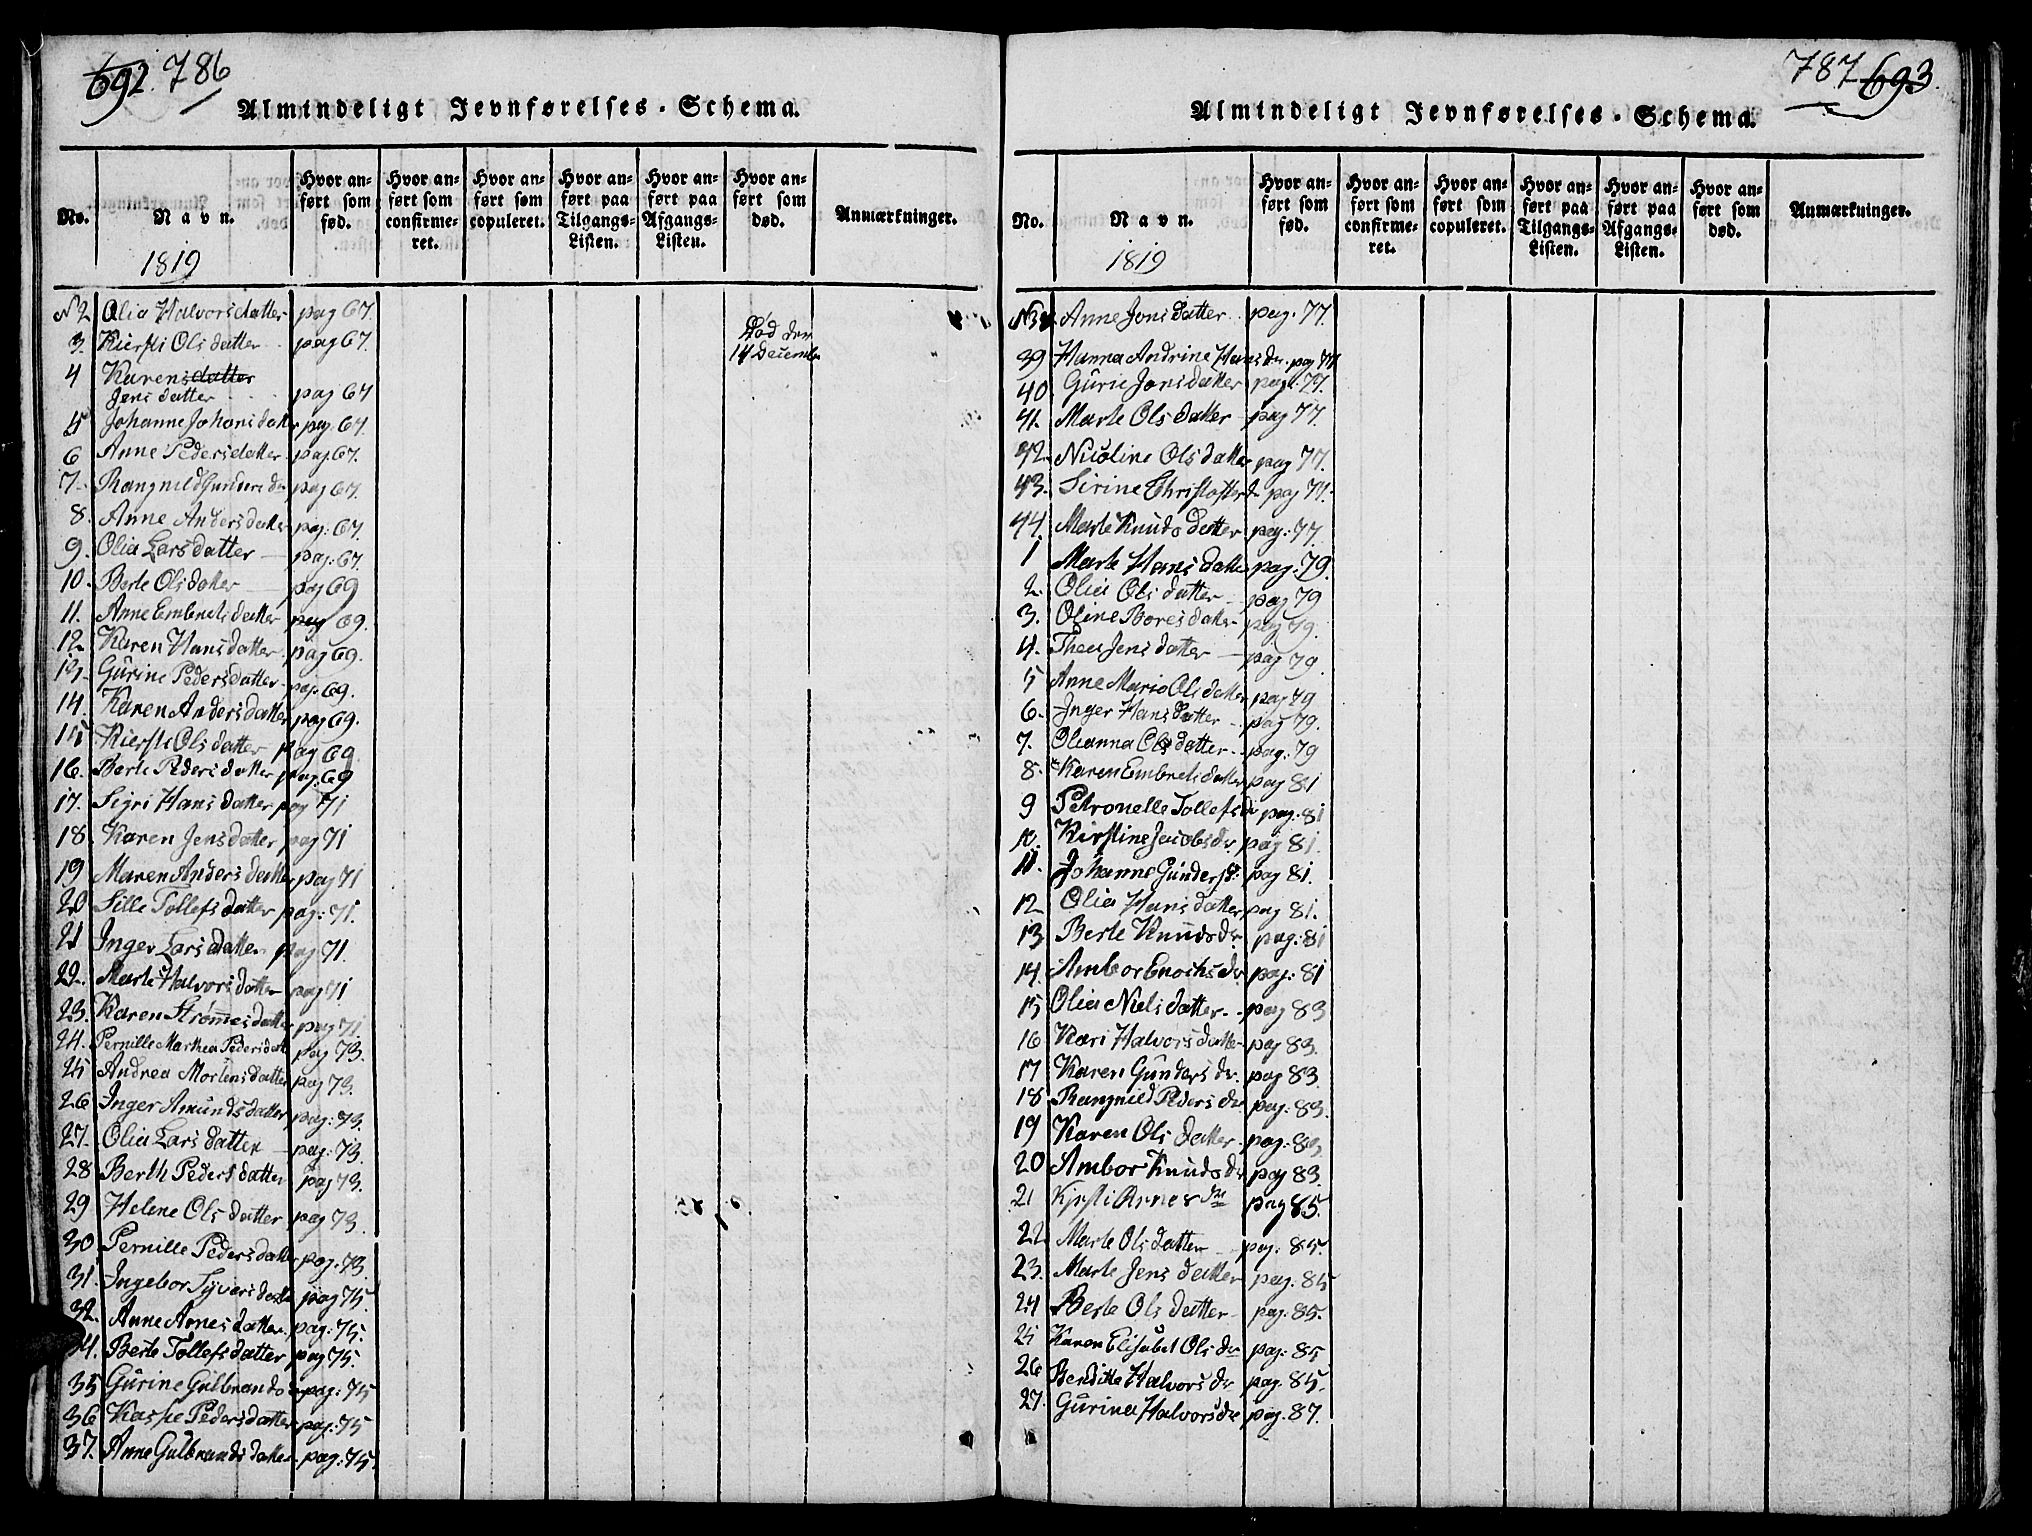 692. 786
Almindeligt Jevnførelses-Schema.
No.
Navn.
Hvor anført som fød.
Hvor anført som confirmeret.
Hvor anført som copuleret.
Hvor anført paa Tilgangs-Listen.
Hvor anført paa Afgangs-Listen.
Hvor anført som død.
Anmærkninger.
1819
N 2 Olia Halvorsdatter pag 67.
3. Kiersti Olsdatter pag 67. Død den 14 Decemb
4 Karen sdatter
Jensdatter pag 67
5 Johanne Johansdatter pag. 67.
6 Anne Pedersdatter pag 67.
7. Rangnild Gunders dr pag 67.
8. Anne Andersdatter pag: 67.
9. Olia Larsdatter pag: 67.
10. Berte Olsdatter pag 69
11. Anne Embretsdatter pag 69.
12. Karen Hansdatter pag 69.
13. Gurine Pedersdatter pag. 69.
14. Karen Andersdatter pag 69.
15 Kiersti Olsdatter pag 69
16. Berte Pedersdatter pag. 69
17. Sigri Hansdatter pag 71
18. Karen Jensdatter pag 71
19 Maren Andersdatter pag 71
20 Sille Tollefsdatter pag: 71.
21 Inger Larsdatter pag 71.
22. Marte Halvorsdatter pag 71
23. Karen Strømesdatter pag 71
24. Pernille Marthea Pedersdatt pag 73.
25 Andrea Mortensdatter pag 73.
26 Inger Amundsdatter pag: 73.
27. Olia Larsdatter pag: 73.
28 Berth Pedersdatter pag 73.
29 Helene Olsdatter pag 73.
30 Pernille Pedersdatter pag. 73.
31. Ingebor Syversdatte pag 75.
32. Anne Arnesdatter pag: 75.
34. Berte Tollefsdatter pag 75.
35 Gurine Gulbrands pag: 75
36 Kaspe Pedersdatter pag. 75
37. Anne Gulbrandsdatter pag: 75.
787 693.
Almindeligt Jevnførelses-Schema.
No.
Navn.
Hvor anført som fød.
Hvor anført som confirmeret.
Hvor anført som copuleret.
Hvor anført paa Tilgangs-Listen.
Hvor anført paa Afgangs-Listen.
Hvor anført som død.
Anmærkninger.
1819
Anne Jonsdatter pag. 77.
39 Hanna Andrine Hansdr. pag 77
40 Gurie Jonsdatter pag. 77.
41. Marte Olsdatter pag 77.
42. Nicoline Olsdatter pag 77.
43. Sirine Christofers pag 77.
44. Marte Knudsdatter pag: 77.
1 Marte Hansdatter pag: 79.
2. Olia Olsdatter pag 79
3. Oline Boresdatter pag 79.
4. Thea Jensdatter pag 79.
5 Anne Maria Olsdatter pag 79
6. Inger Hansdatter pag 79.
7. Olianna Olsdatter pag. 79
8. Karen Embretsdatter pag 81
9 Petronelle Tollefsdr pag. 81
10. Kirstine Jacobsdr. pag 81.
11. Johanne Gunders pag 81.
12 Olia Hansdatter pag 81.
13 Berte Knudsdr pag: 81
14. Ambor Enochsdr pag: 81
15 Olia Nielsdatter pag 83
16 Kari Halvorsdatter pag 83.
17 Karen Gundersdr. pag 83.
18 Rangnild Pedersdr pag: 83.
19 Karen Olsdatter pag: 83.
20 Ambor Knudsdr pag 83.
21 Kjersti Arnes dr pag 85.
22 Marte Olsdatter pag. 85.
23. Marte Jensdatter pag. 85
24 Berte Olsdatter pag. 85.
25 Karen Elisabet Olsdr pag. 85
26 Benditte Halvorsdr pag. 85.
27. Gurina Halvorsdr pag. 87.